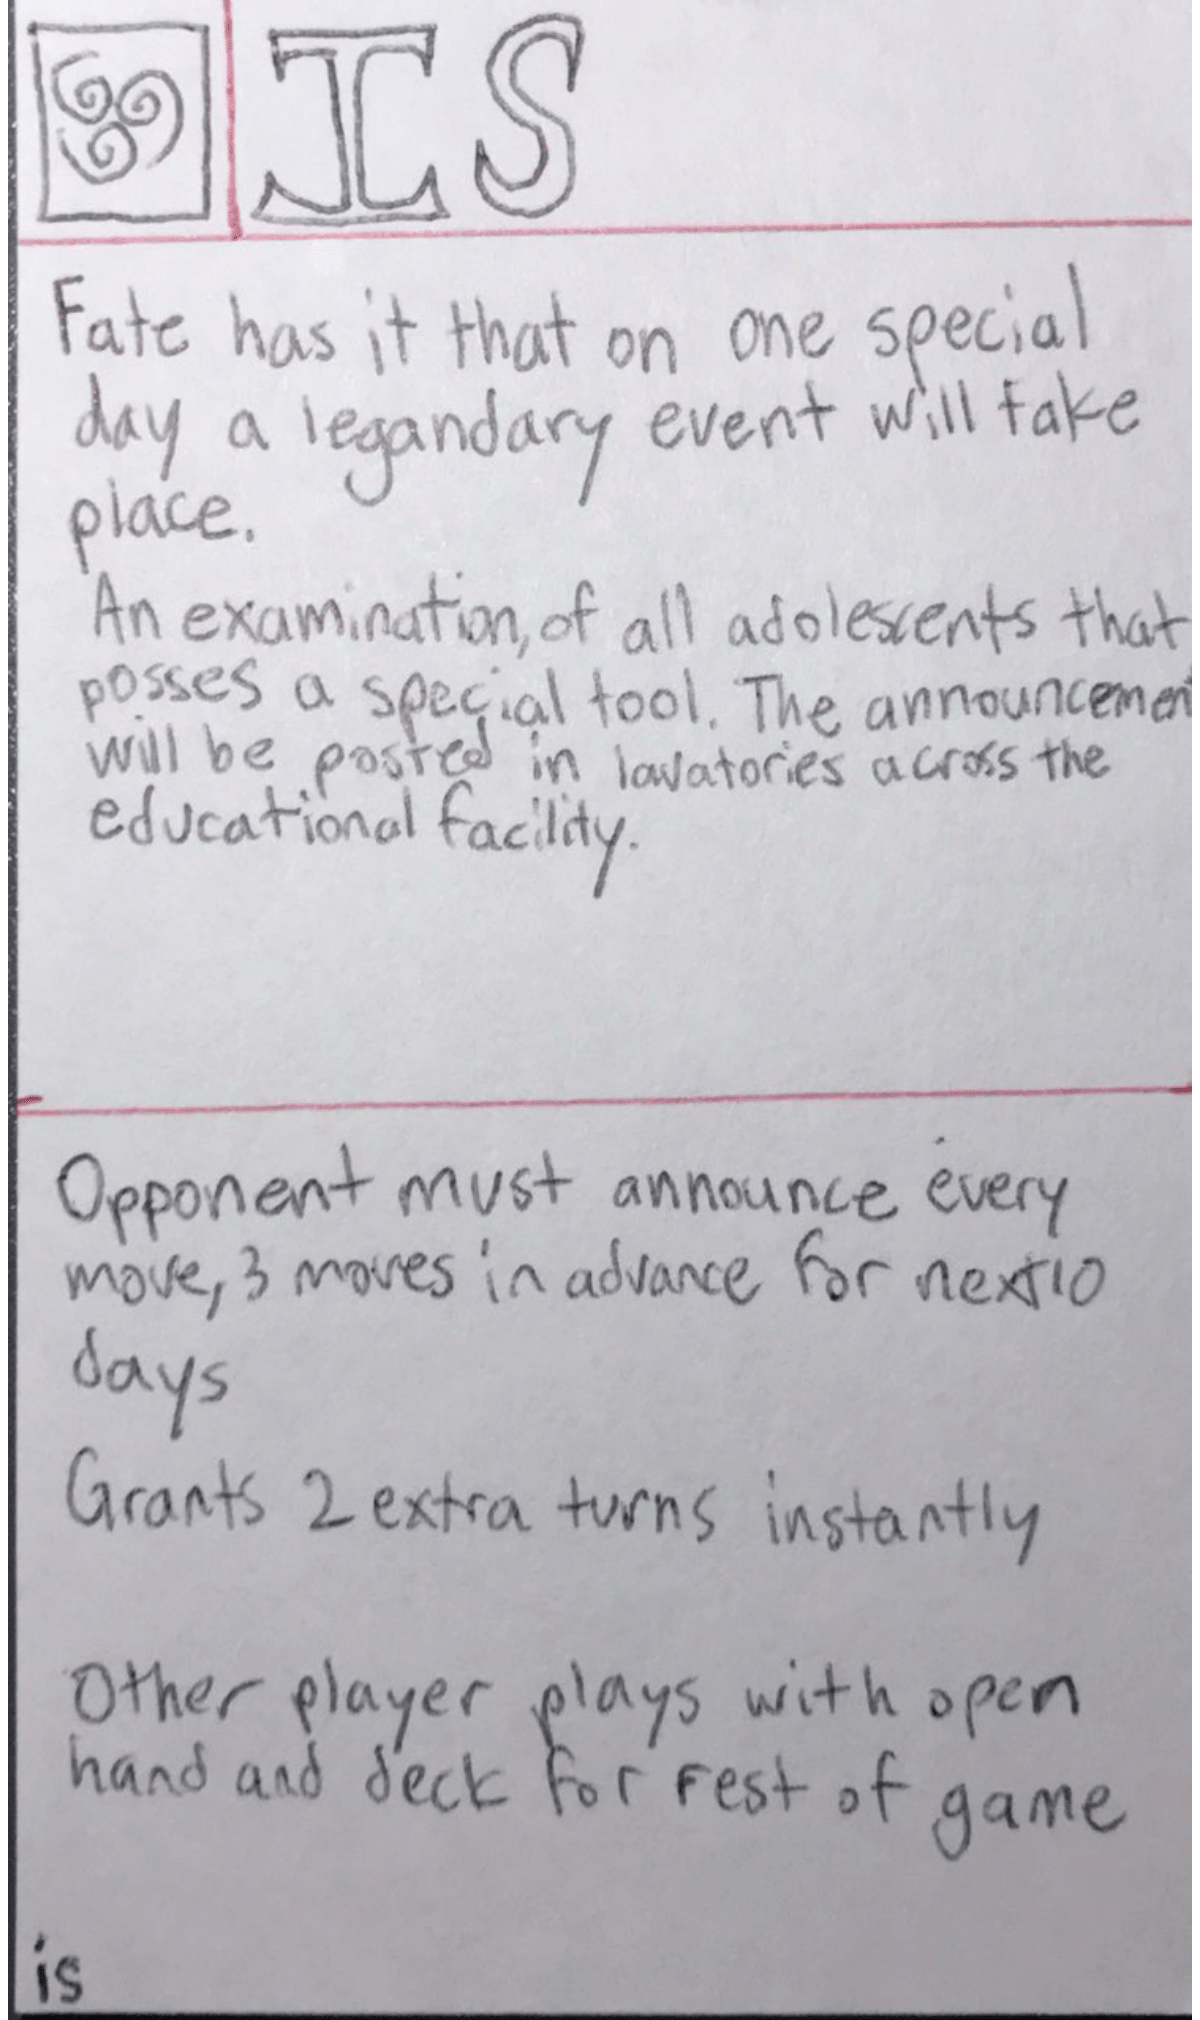 IS
Fate has it that on one special
day a legandary event will take
place.
An examination, of all adolescents that
posses a special tool. The announcement
will be posted in lavatories across the
educational facility.
Opponent must announce every
move, 3 moves in advance for next 10
days
Grants 2 extra turns instantly
Other player plays with open
hand and deck for rest of game
is